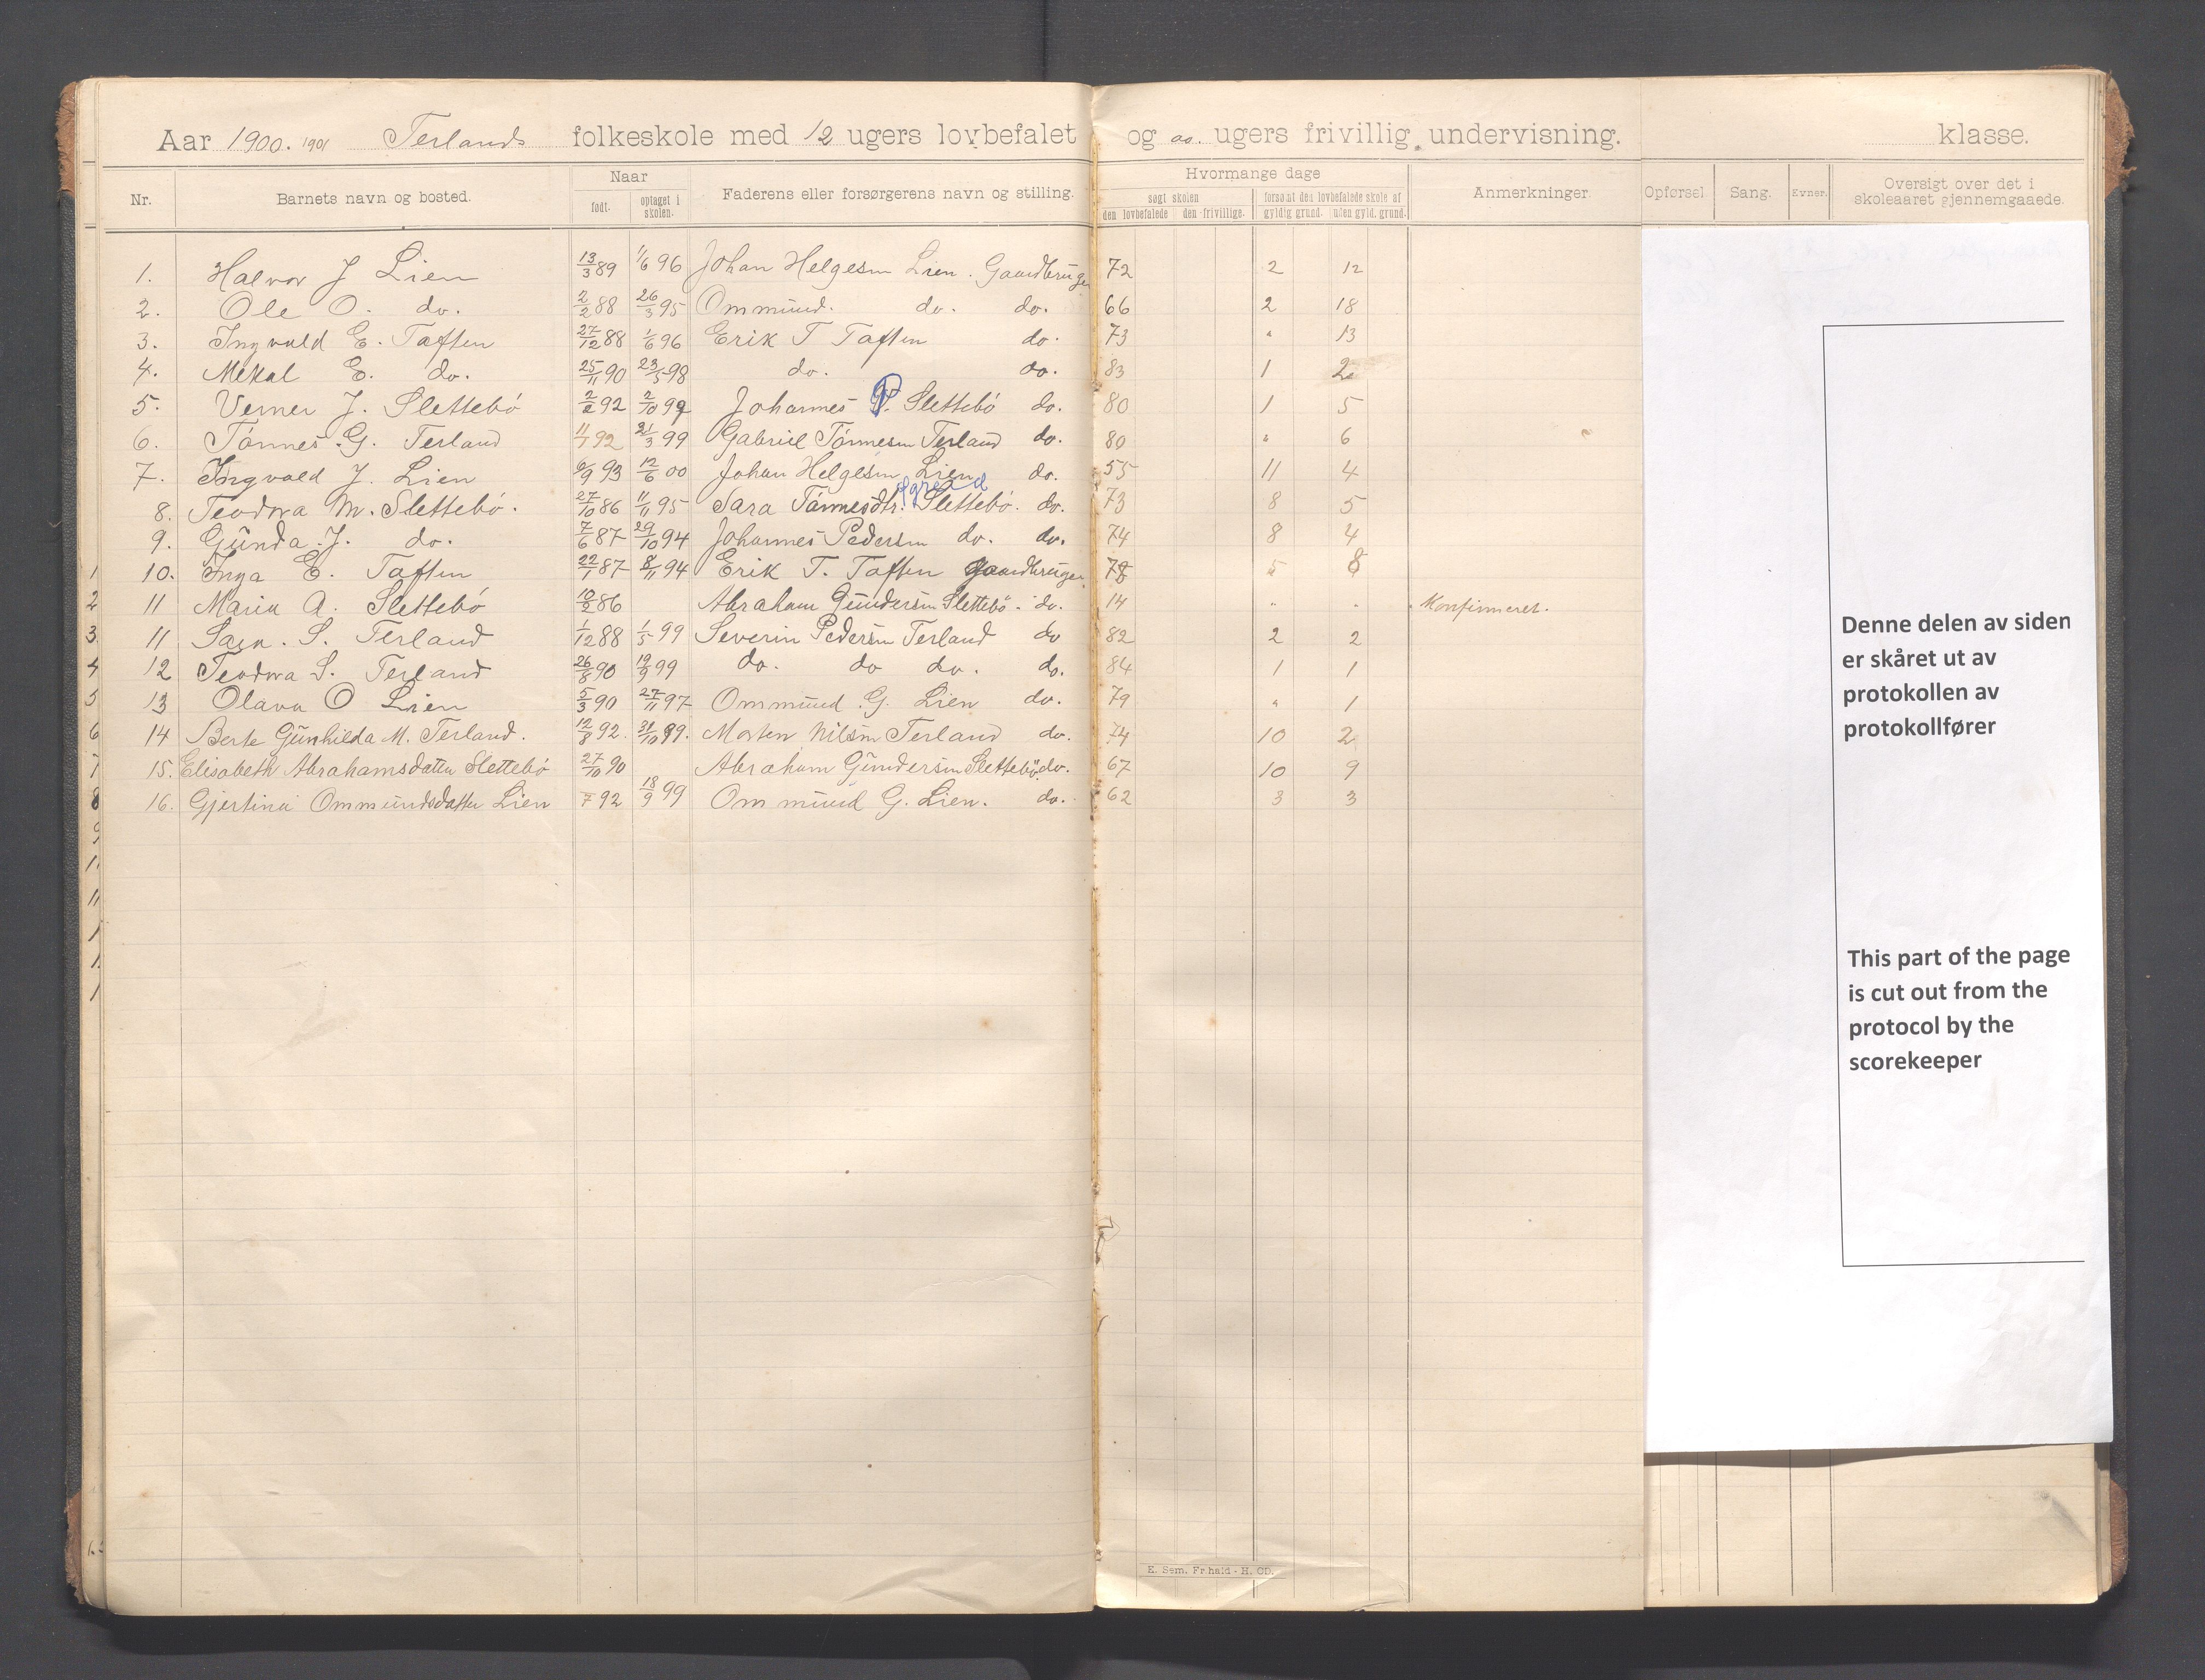 Aar 1900. 1901 Terlands folkeskole med 12 ugers lovbefalet og ugers frivillig undervisning. klasse.
Nr. Barnets navn og bosted. Naar født. optaget i skolen. Faderens eller forsørgerens navn og stilling. Hvormange dage søgt skolen den lovbefalede den frivillige. forsømt den lovbefalede skole af gyldig grund. uden gyld. grund. Anmerkninger. Opførsel Sang. Evner. Oversigt over det i skoleaaret gjennemgaaede.
1. Halvor J Lien 13/3 89 1/6 96 Johan Helgesen Lien. Gaardbruger 72 2 12
2. Ole O. do. 2/2 88 26/3 95 Ommund. do. do. 66 2 18
3. Ingvald E. Taften 27/12 88 1/6 96 Erik T Taften do. 73 " 13
4. Mekal E. do. 25/11 90 23/5 98 do. do. 83 1 2
5. Verner J. Slettebö 2/2 92 2/10 99 Johannes P. Slettebö do. 80 1 5
6. Tönnes G. Terland 11/7 92 21/3 99 Gabriel Tönnesen Terland do. 80 " 6
7. Ingvald J. Lien 6/9 93 12/6 00 Johan Helgesen Lien do. 55 11 4
8. Teodora M. Slettebö. 27/10 86 11/11 95 Sara Tönnesdtr. Slettebö. do. 73 8 5
9. Gunda J. do. 7/6 87 29/10 94 Johannes Pedersen do. do. 74 8 4
10. Inga E. Taften 22/1 87 8/11 94 Erik T. Taften gaardbruger. 78 5 8
11 Maria A. Slettebö 10/2 86 Abraham Gundersen Slettebö. do. 14 " " Konfirmeret.
11 S. Terland 1/12 88 1/5 99 Severin Pedersen Terland do 82 2 2
12 Teodora S. Terland 26/8 90 19/9 99 do. do do. do. 84 1 1
13 Olava O Lien 5/3 90 27/11 97 Ommund G. Lien do. 79 " 1
14 Berte Gunhilda M. Terland. 12/8 92. 31/10 99. Morten Nilsen Terland do. 74 10 2
15. Elisabeth Abrahamsdatter Slettebö 27/10 90 Abraham Gundersen Slettebö do. 67 10 9
16. Gjertina Ommundsdatter Lien 7 92 18/9 99 Ommund G. Lien. do. 62 3 3
Denne delen av siden
er skåret ut av
protokollen av
protokollfører
This part of the page
is cut out from the
protocol by the
scorekeeper